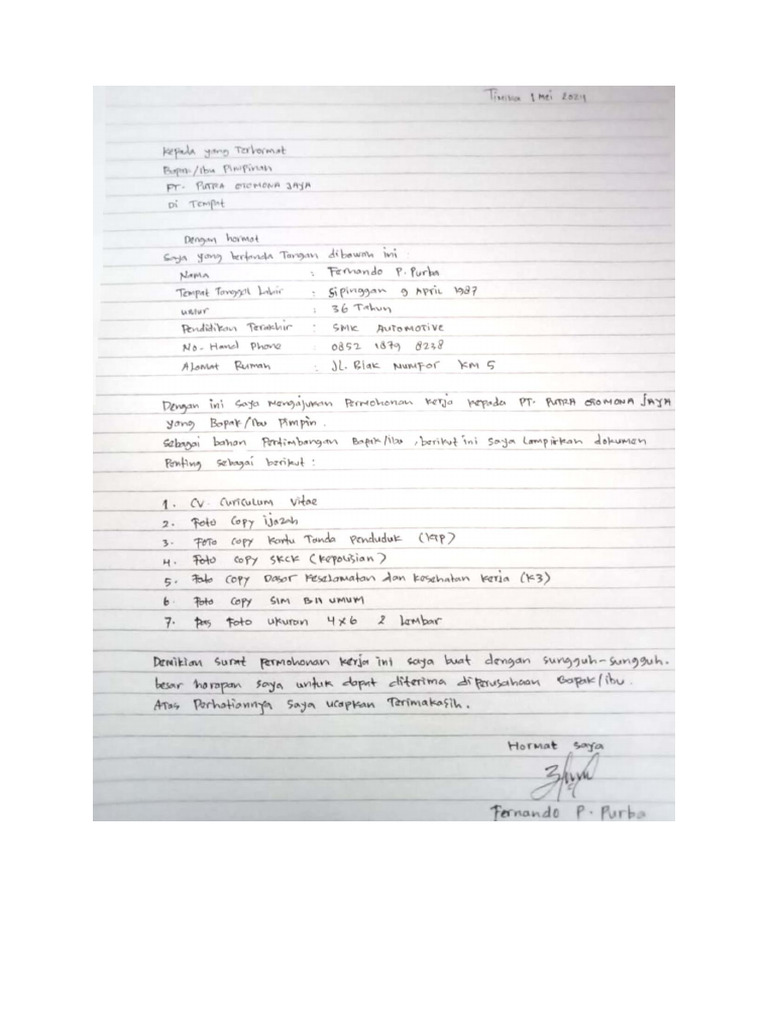 Timika 1 Mei 2024
Kepada yang Terhormat
Bapak/Ibu Pimpinan
PT. PUTRA OTOMONA JAYA
Di Tempat
Dengan hormat
Saya yang bertanda Tangan dibawah ini :
Nama : Fernando P. Purba
Tempat Tanggal Lahir : Sipinggan 9 April 1987
umur : 36 Tahun
Pendidikan Terakhir : SMK AUTOMOTIVE
No. Hand Phone : 0852 1879 8238
Alamat Rumah : JL. Biak Numfor KM 5
Dengan ini Saya Mengajukan Permohonan Kerja Kepada PT. PUTRA OTOMONA JAYA
yang Bapak/Ibu Pimpin.
Sebagai bahan Pertimbangan Bapak/Ibu, berikut ini saya lampirkan dokumen
Penting sebagai berikut :
1. CV. Curiculum Vitae
2. Foto Copy ijazah
3. Foto copy Kartu Tanda Penduduk (KTP)
4. Foto copy SKCK (Kepolisian)
5. Foto copy Dasar Keselamatan dan Kesehatan Kerja (K3)
6. Foto copy SIM BII UMUM
7. Pas Foto ukuran 4x6 2 lembar
Demikian surat permohonan kerja ini saya buat dengan sungguh-sungguh.
besar harapan saya untuk dapat diterima diperusahaan Bapak/ibu.
Atas Perhatiannya saya ucapkan Terimakasih.
Hormat saya
Fernando P. Purba